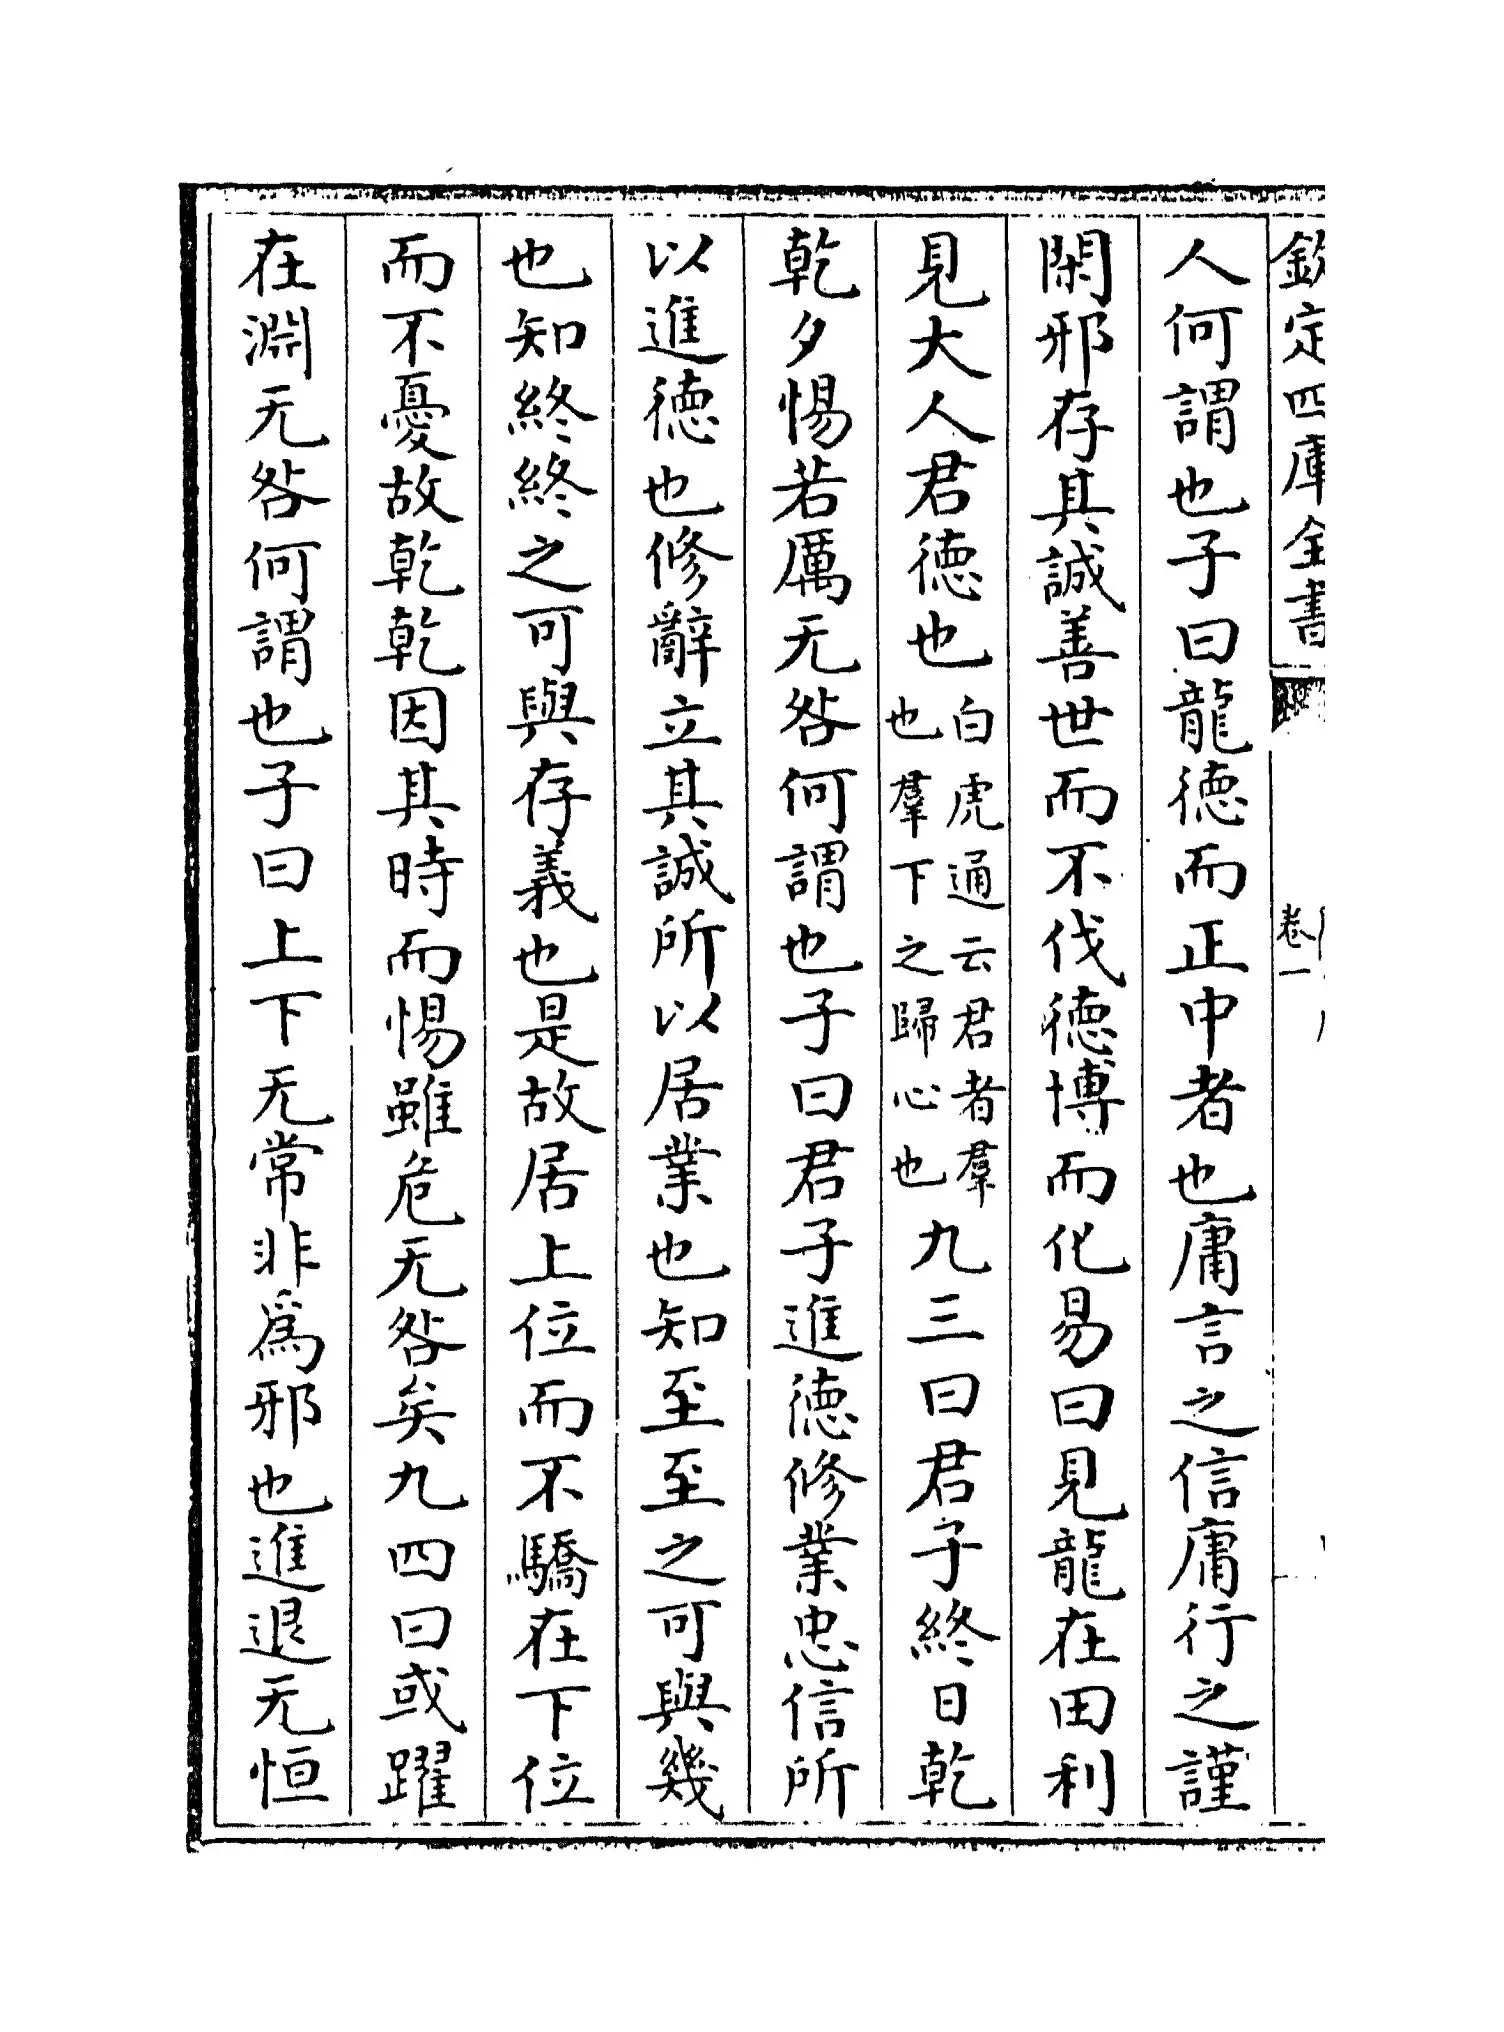 欽定四庫全書
卷一
人何謂也子曰龍徳而正中者也庸言之信庸行之謹
閑邪存其誠善世而不伐徳博而化易曰見龍在田利
見大人君徳也白虎通云君者羣也羣下之歸心也九三曰君子終日乾
乾夕惕若厲无咎何謂也子曰君子進徳修業忠信所
以進徳也修辭立其誠所以居業也知至至之可與幾
也知終終之可與存義也是故居上位而不驕在下位
而不憂故乾乾因其時而惕雖危无咎矣九四曰或躍
在淵无咎何謂也子曰上下无常非爲邪也進退无恒